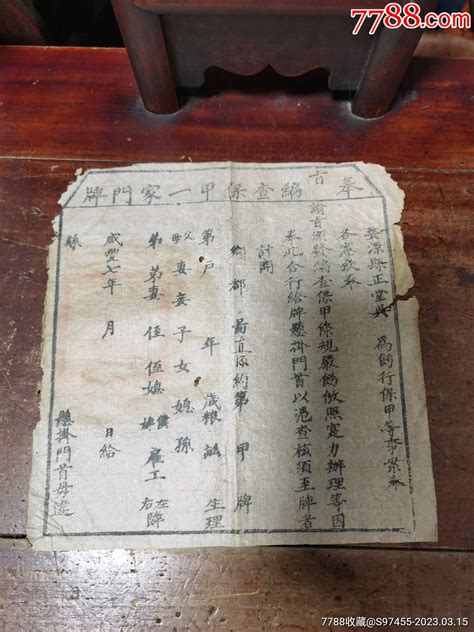 7788.com
奉
旨編查保甲一家門牌
婺源縣正堂吳 為飭行保甲等事案奉
各憲敦奉
諭旨須發編查保甲條規嚴飭倣照寔力辦理等因
奉此合行給牌懸掛門首以憑查核須至牌者
計開
鄉 都 圖直 約第 甲 牌
第 户 年 歲 糧 畆 生理
父母 妻妾子女媳孫
弟 弟妻 侄 侄媳 僱工 左右隣
咸豐七年 月 日給
縣
懸掛門首毋違
7788收藏@S97455-2023.03.15